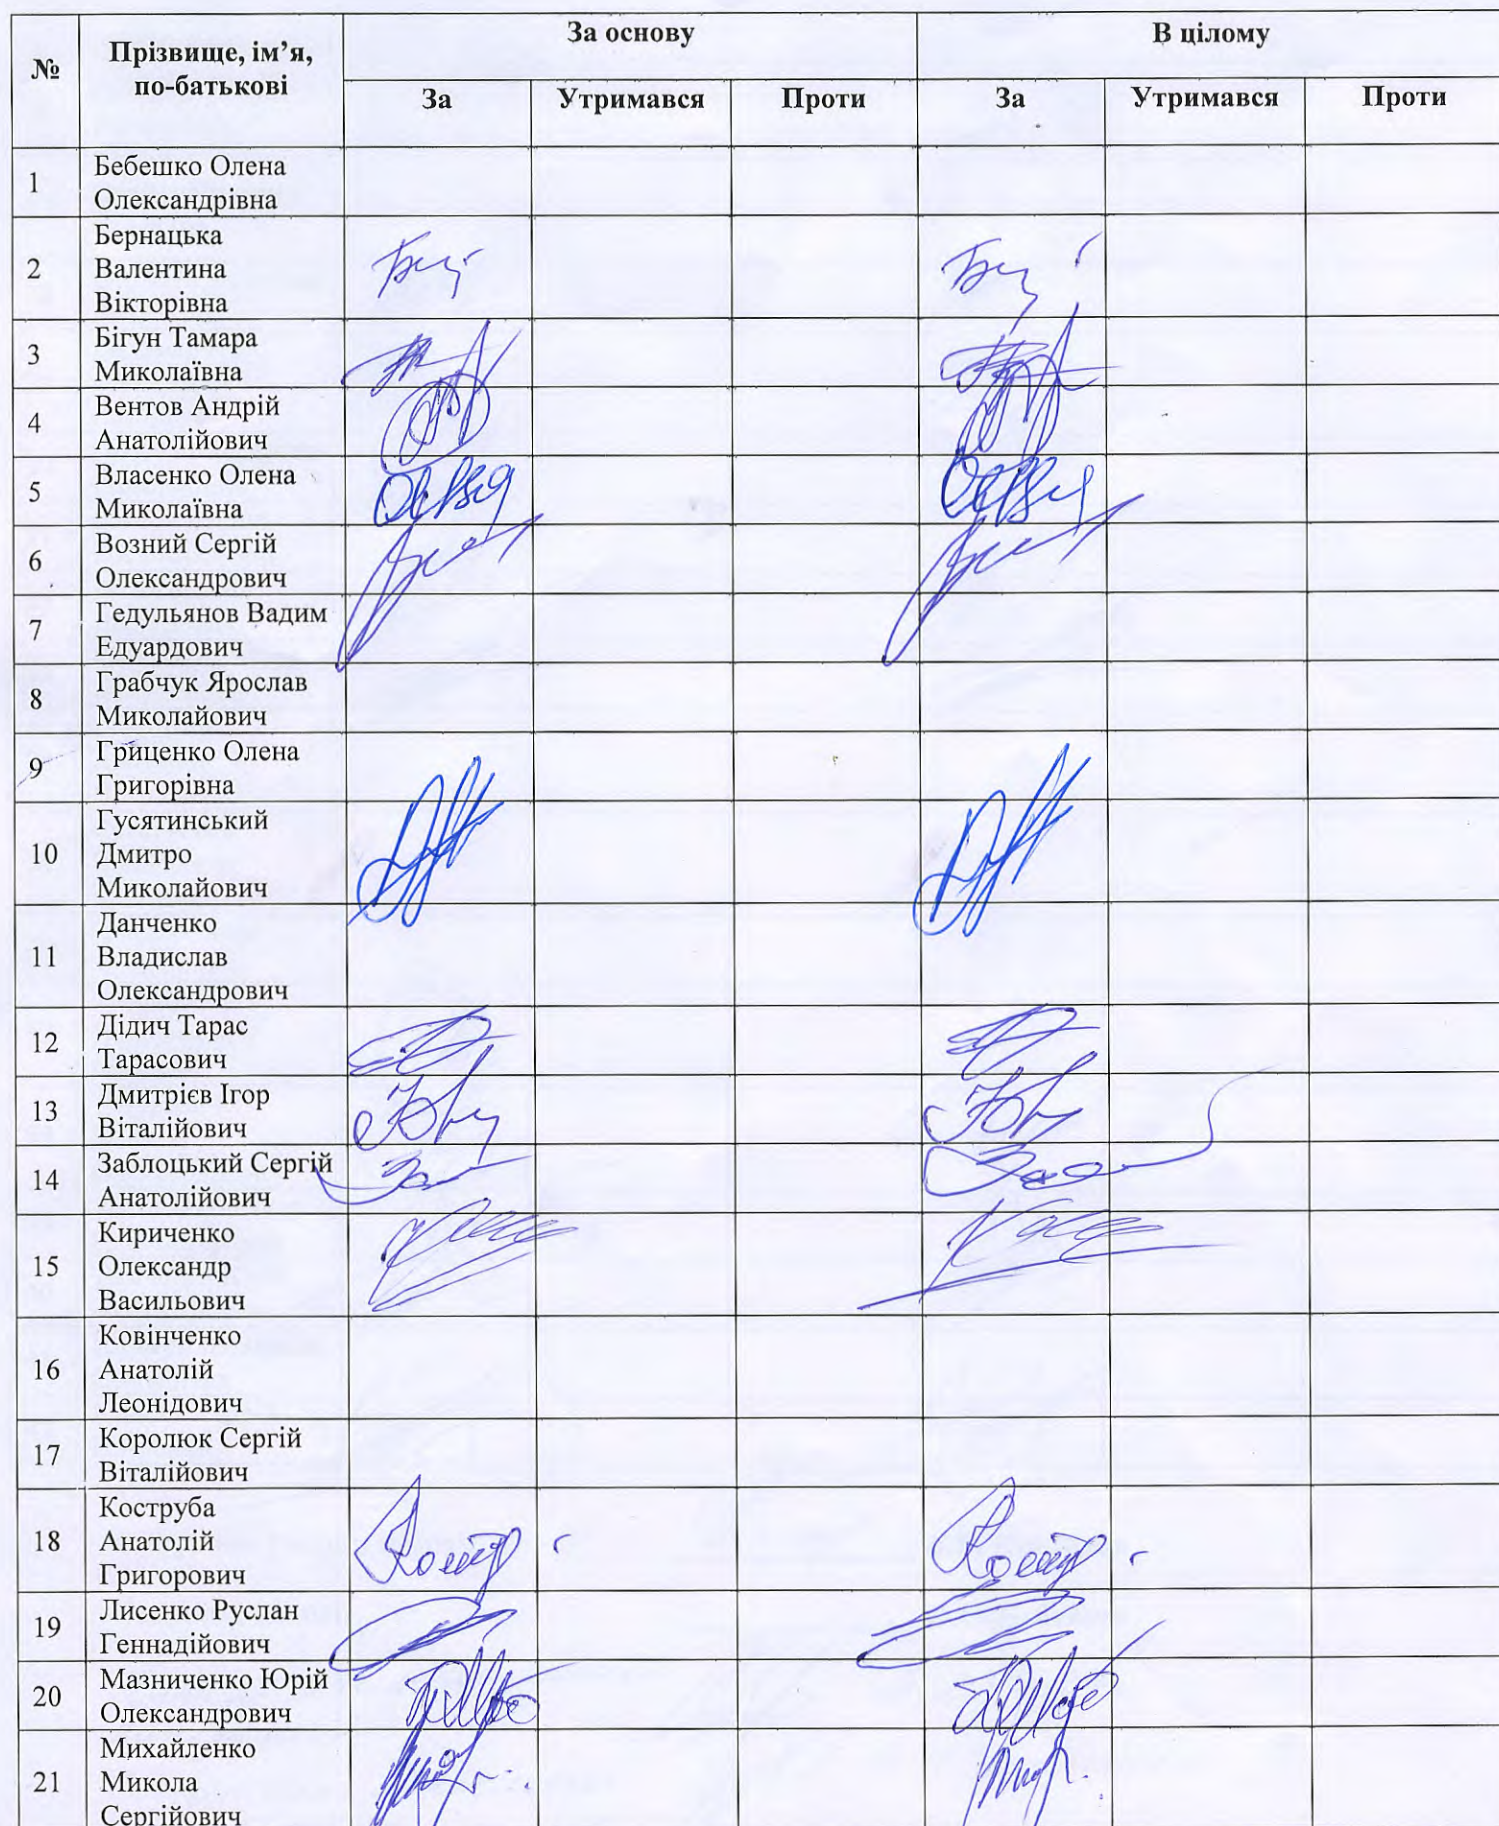 № Прізвище, ім’я, по-батькові За основу В цілому
За Утримався Проти За Утримався Проти
1 Бебешко Олена
Олександрівна
2 Бернацька
Валентина
Вікторівна
3 Бігун Тамара
Миколаївна
4 Вентов Андрій
Анатолійович
5 Власенко Олена
Миколаївна
6 Возний Сергій
Олександрович
7 Гедульянов Вадим
Едуардович
8 Грабчук Ярослав
Миколайович
9 Гриценко Олена
Григорівна
10 Гусятинський
Дмитро
Миколайович
11 Данченко
Владислав
Олександрович
12 Дідич Тарас
Тарасович
13 Дмитрієв Ігор
Віталійович
14 Заблоцький Сергій
Анатолійович
15 Кириченко
Олександр
Васильович
16 Ковінченко
Анатолій
Леонідович
17 Королюк Сергій
Віталійович
18 Коструба
Анатолій
Григорович
19 Лисенко Руслан
Геннадійович
20 Мазниченко Юрій
Олександрович
21 Михайленко
Микола
Сергійович